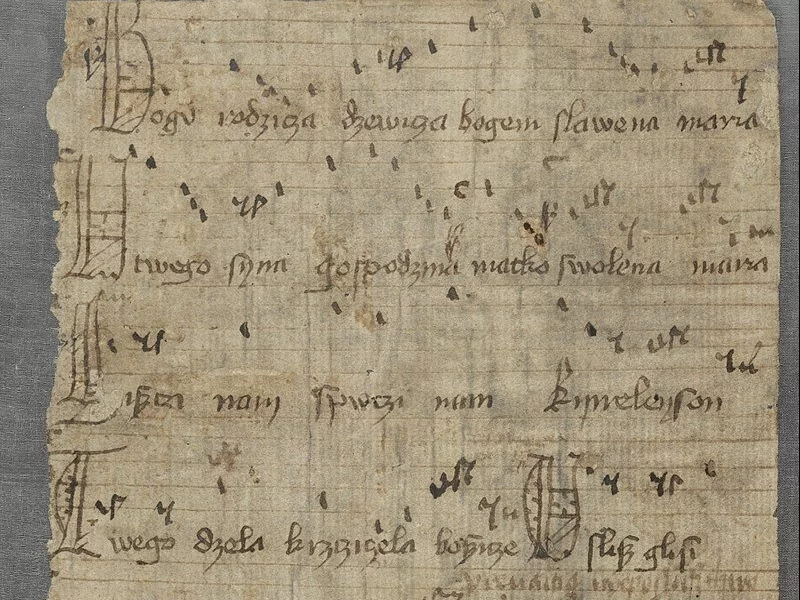 Bogu rodzicza dzewicza bogem slawena maria
U twego syna gospodzina matko swolena maria
Siszczi nam spwczi nam Kyrieleyson
Twego dzela krzcziczela bozicze U slisz glosi